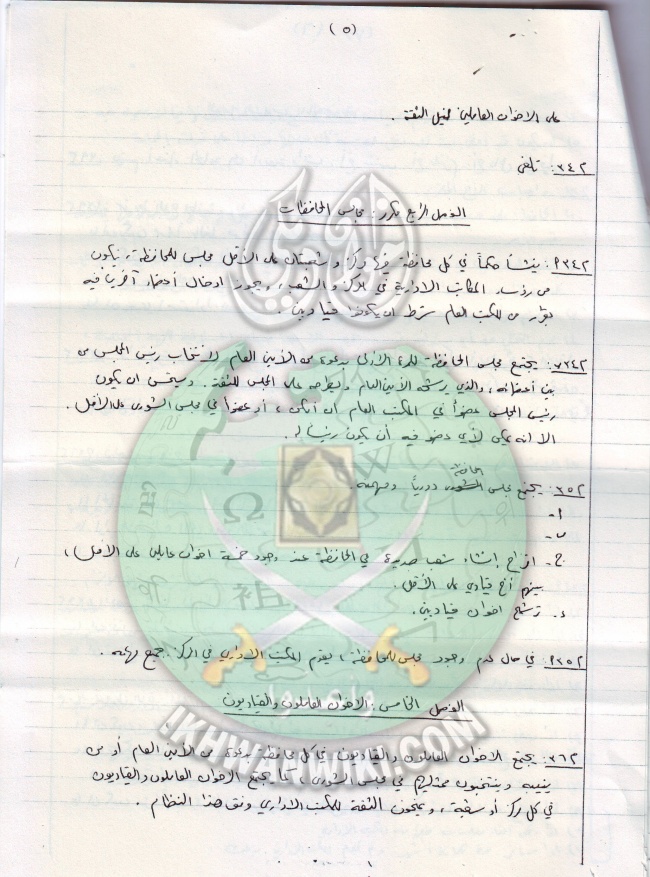 (٥)
على الاخوان العاملين لنيل الثقة .
م٣٤٢: تلغى
الفصل الرابع مكرر: مجالس المحافظات
ينشأ حكماً في كل محافظة فيها مركز وشعبتان على الأقل مجلس للمحافظة، يتكون
من رؤساء المكاتب الادارية في المركز والشعب، ويجوز ادخال أعضاء آخرين فيه
بقرار من المكتب العام شرط ان يكونوا قياديين .
يجتمع مجلس المحافظة للمرة الأولى بدعوة من الأمين العام لانتخاب رئيس المجلس من
بين أعضائه، والذي يرشحه الأمين العام ويطرحه على المجلس للثقة . ويستحسن ان يكون
رئيس المجلس عضواً في المكتب العام ان أمكن، أو عضواً في مجلس الشورى على الأقل .
الا انه يمكن لأي عضو فيه أن يكون رئيساً له .
م٣٥٢: يجتمع مجلس المحافظة دورياً ومهمته:
أ-
ب-
ج- اقتراح إنشاء شعب جديدة في المحافظة عند وجود خمسة اخوان عاملين على الأقل،
بينهم أخ قيادي على الأقل .
د- ترشيح اخوان قياديين .
في حال عدم وجود مجلس للمحافظة، يقوم المكتب الاداري في المركز بجميع مهامه .
الفصل الخامس: الاخوان العاملون والقياديون
م٣٦٢: يجتمع الاخوان العاملون والقياديون في كل محافظة بدعوة من الأمين العام أو من
ينيبه وينتخبون ممثليهم في مجلس الشورى، كما يجتمع الاخوان العاملون والقياديون
في كل مركز أو شعبة، ويمنحون الثقة للمكتب الاداري وفق هذا النظام .
وأعدوا
IKHWANWIKI.COM